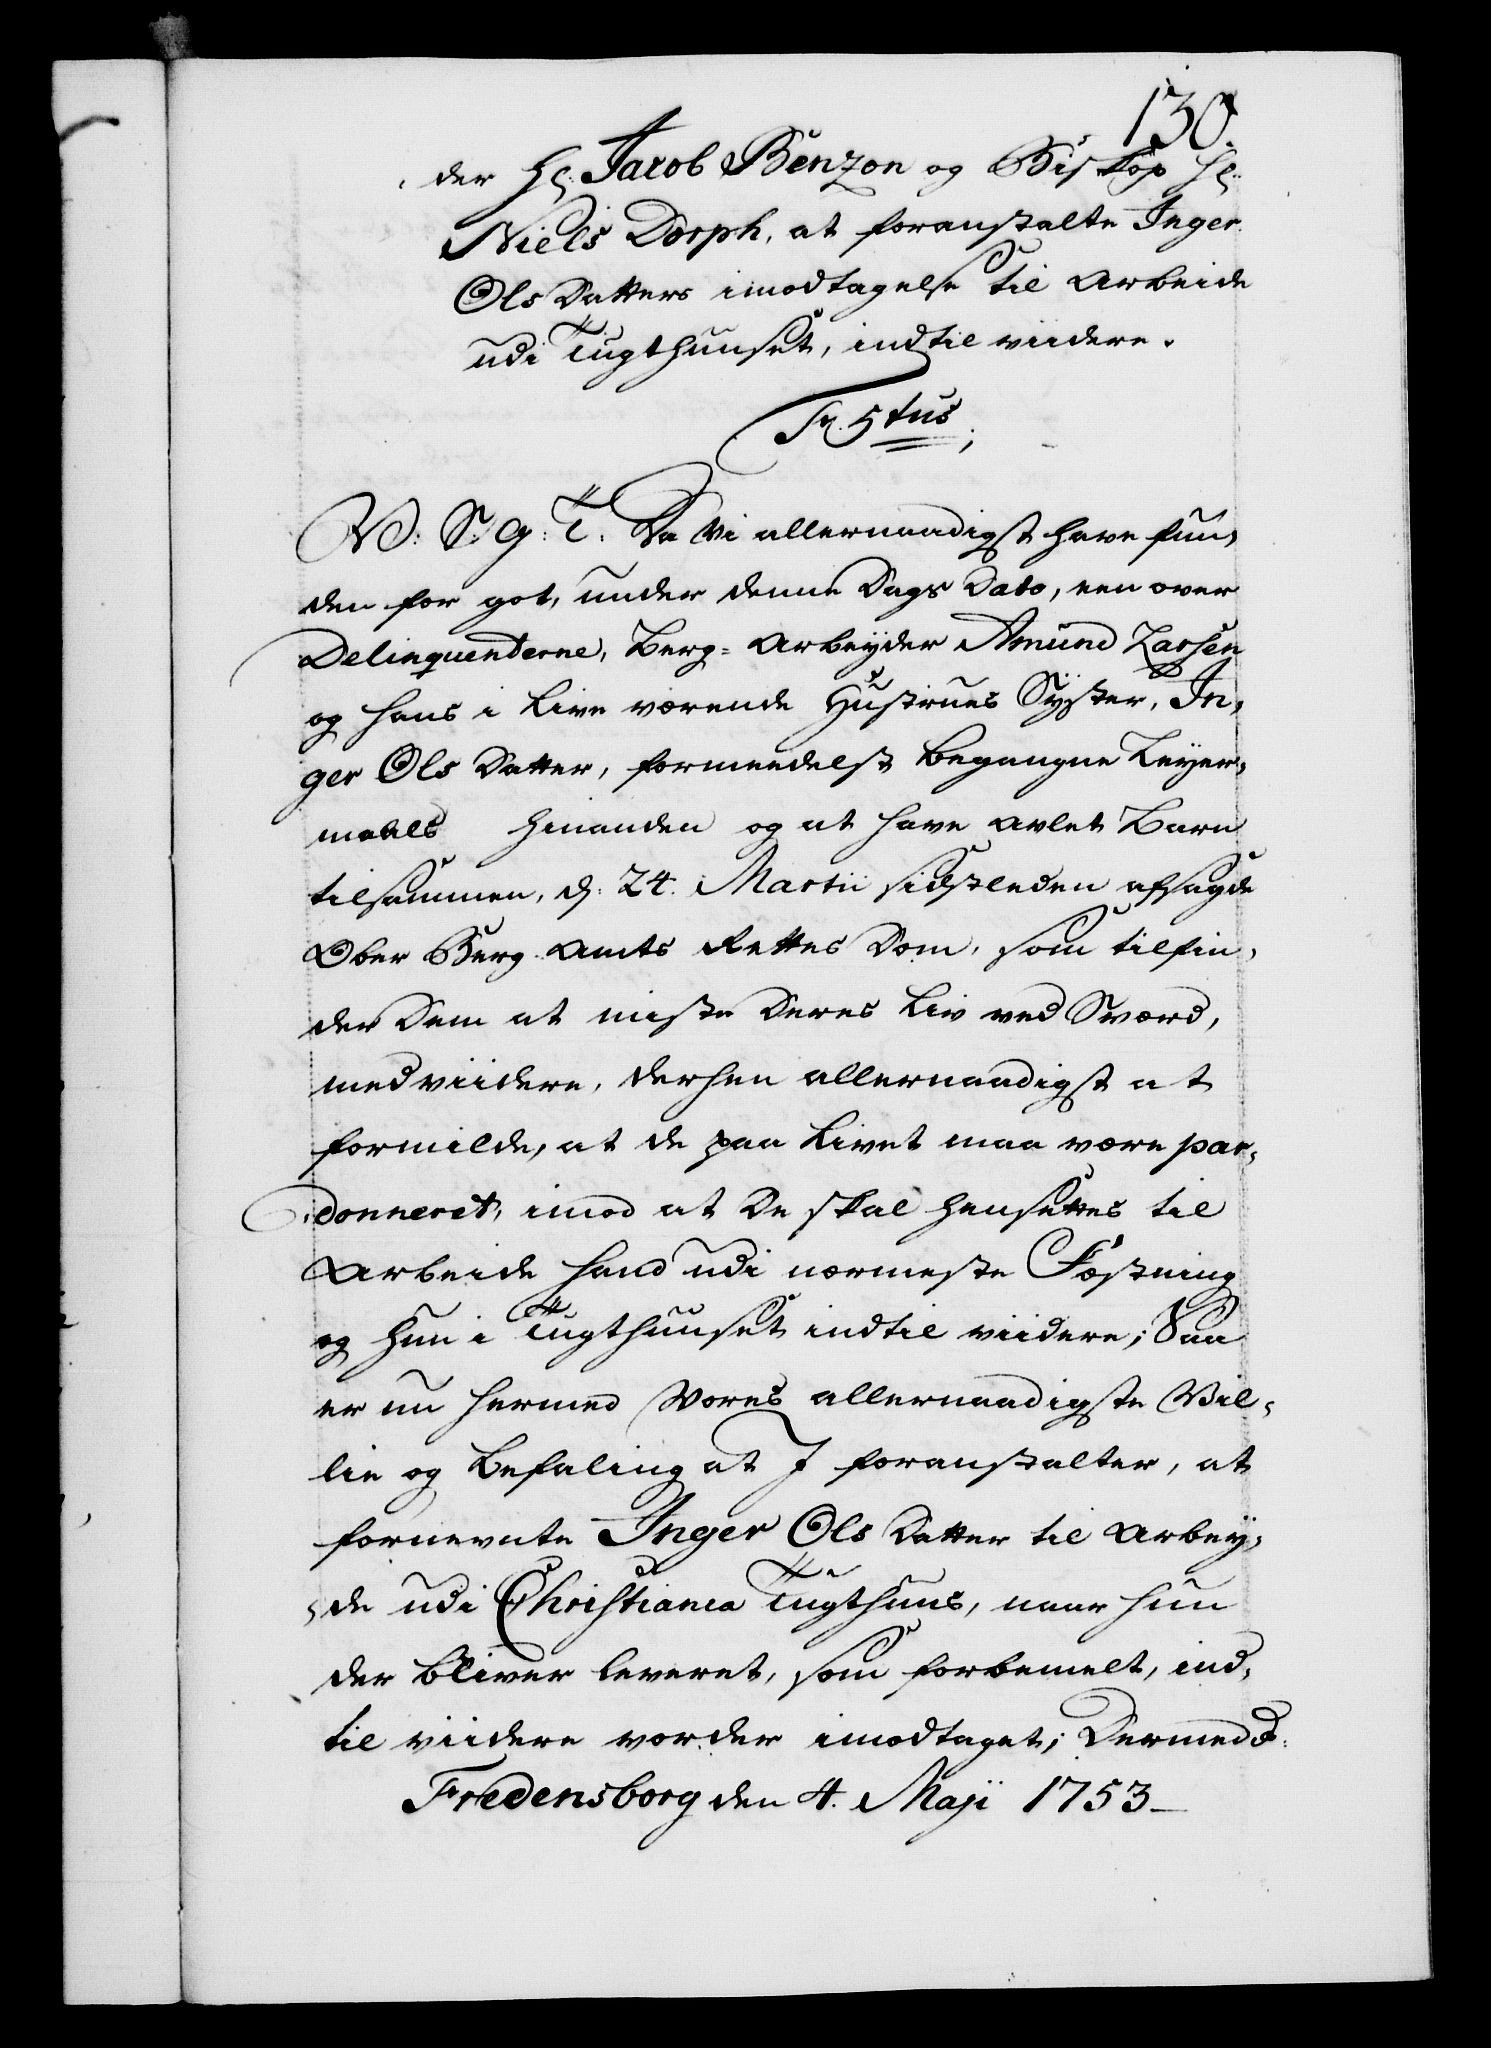 130.
der Hr: Jacob Benzon og Biskop Hr:
Niels Dorph, at foranstalte Inger
Ols Datters imodtagelse til Arbeide
udi Tugthuuset, indtil viidere.
Fr. 5tus;
V: S: G: T. Da Vi allernaadigst have fun,
den for got, under denne Dags Dato, een over
Delinquenterne, Berg-Arbeyder Amund Larsen
og hans i Live værende Hustrues Syster, In,
ger Ols Datter, formeedelst begangne Leyer,
maals hinanden og at have avlet Barn
tilsammen, d: 24. Martii sidstleden afsagde
Ober Berg Amts Rettes Dom, som tilfin,
der Dem at miste Deres Liv ved Sværd,
med viidere, derhen allernaadigst at
formilde, at de paa Livet maa være par,
donneret, imod at De skal hensættes til
Arbeide hand udi nærmeste Fæstning
og hun i Tugthuuset indtil viidere; Saa
er nu hermed Vores allernaadigste Vil,
lie og Befaling at I foranstalter, at
fornevnte Inger Ols Datter til Arbey,
de udi Christiania Tugthuus, naar hun
der bliver leveret, som forbemelt, ind,
til viidere vorder imodtaget; Dermed
Fredensborg den 4. Maji 1753